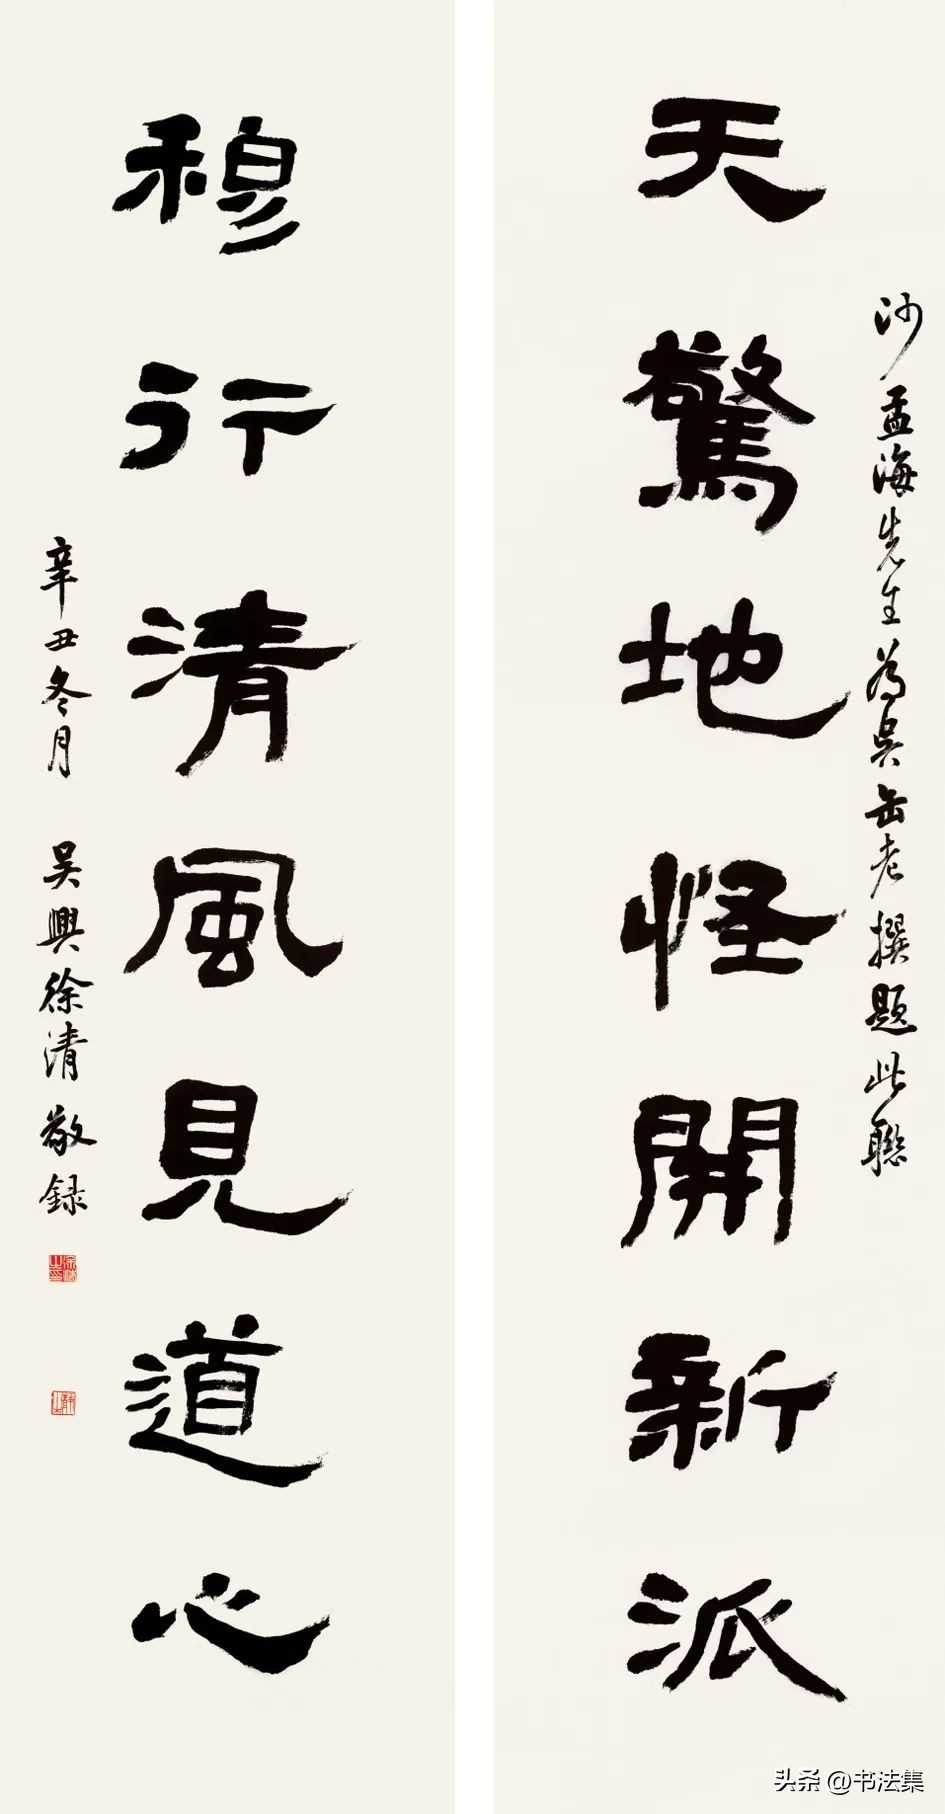 沙孟海先生為吳缶老撰題此聯
天驚地怪開新派
穆行清風見道心
辛丑冬月 吴興徐清敬録
头条 @书法集